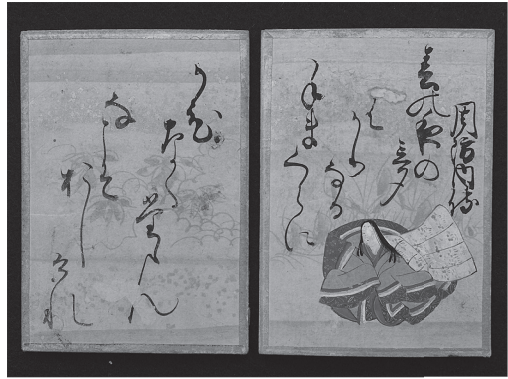 周防内侍
春の夜の
夢
はかりなる
手まくらに
かひ
なく
たゝん
なこそ
おし
けれ